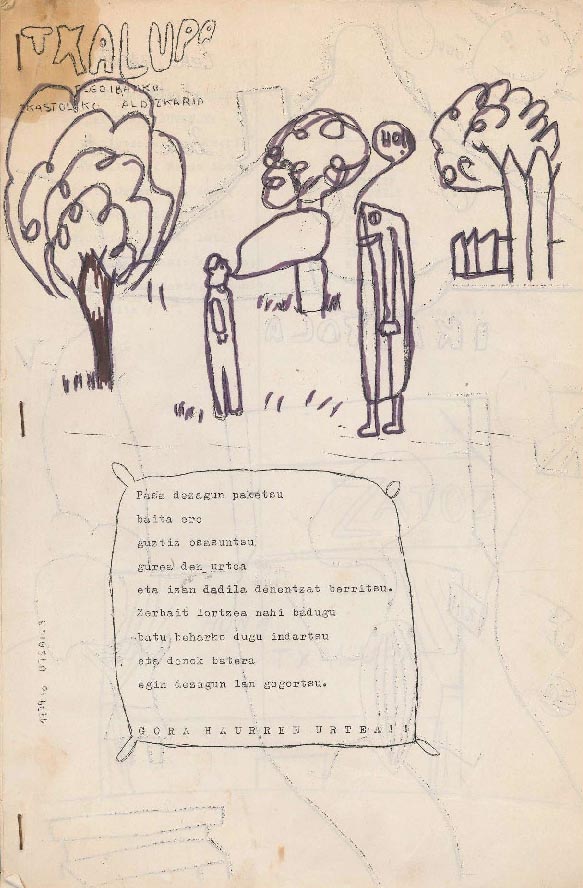 TXALUPA
IKASTOLAKO ALDIZKARIA
HOI!
Pasa dezagun paketsu
baita ere
guztiz osasuntsu
gurea den urtea
eta izan dadila denentzat berritsu.
Zerbait lortzea nahi badugu
batu beharko dugu indartsu
eta denok batera
egin dezagun lan gogortsu.
GORA HAURREN URTEA!!